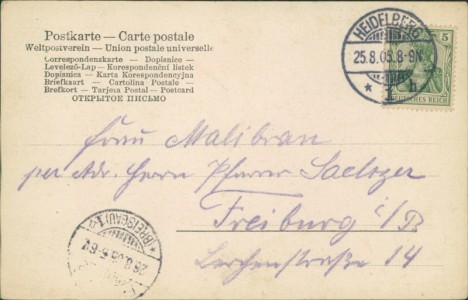 Postkarte — Carte postale
Weltpostverein — Union postale universelle
Correspondenskarte — Dopisnice —
Levelező-Lap — Korespondenční lístek
Dopisnica — Karta Korespondencyjna
Briefkaart — Cartolina Postale —
Brefkort — Tarjeta Postal — Postcard
ОТКРЫТОЕ ПИСЬМО
HEIDELBERG
25.8.05.8-9N.
* 1. h
5
DEUTSCHES REICH
Frau Malibran
per Adr. Herrn Pfarrer
Freiburg i/B
Lerchenstraße 14
(BREISGAU) 1
26.8.05.5-6V